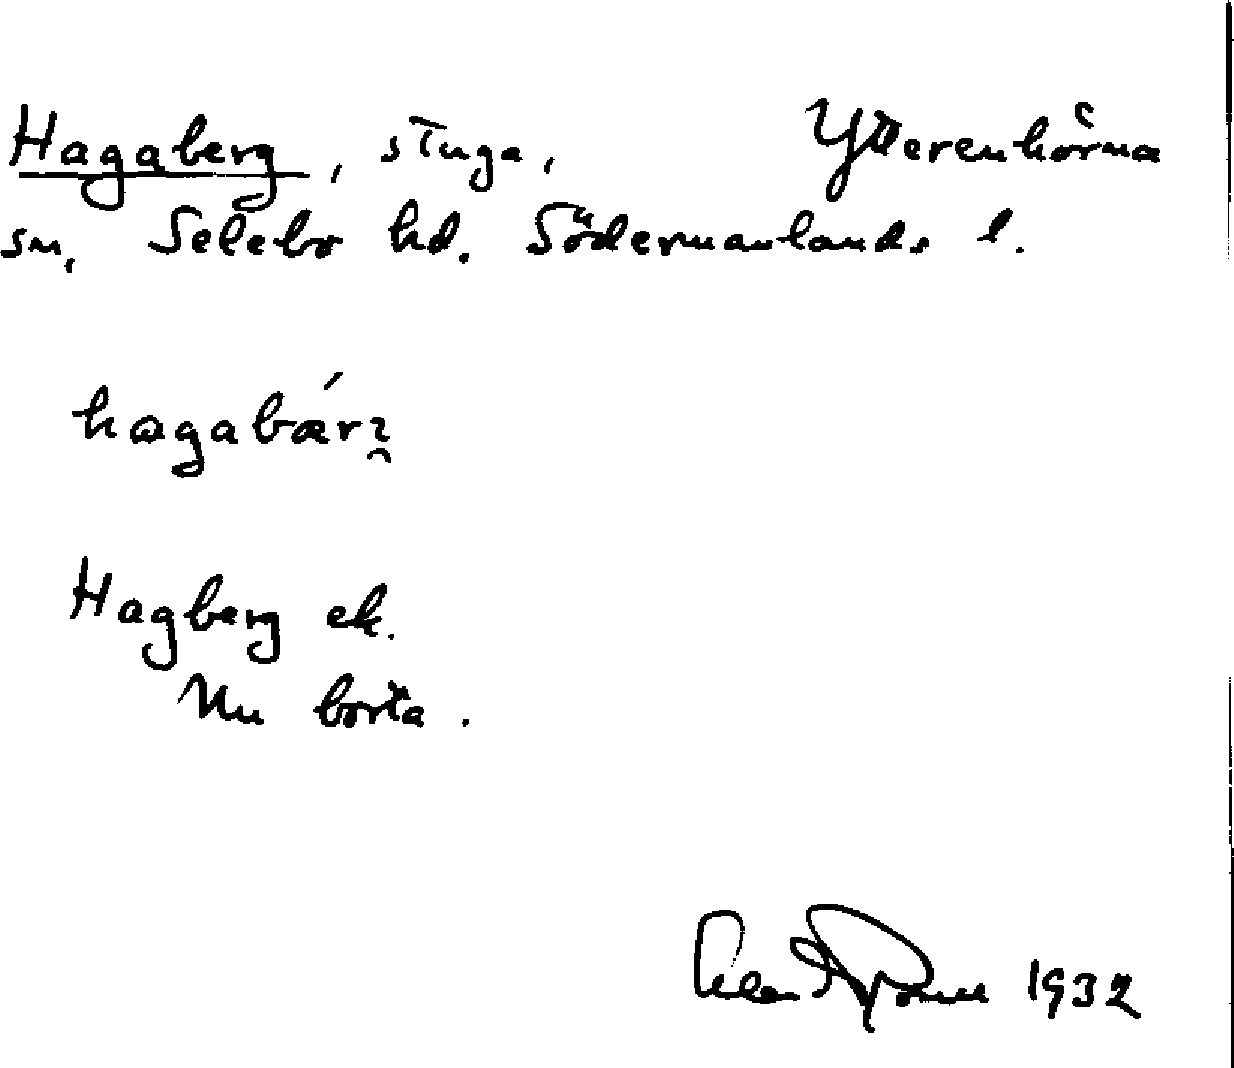 Hagaberg, stuga, Ytterenhörna
sn, Selebo hd. Södermanlands l.
hagabárʒ
Hagberg ek.
Nu borta.
1932